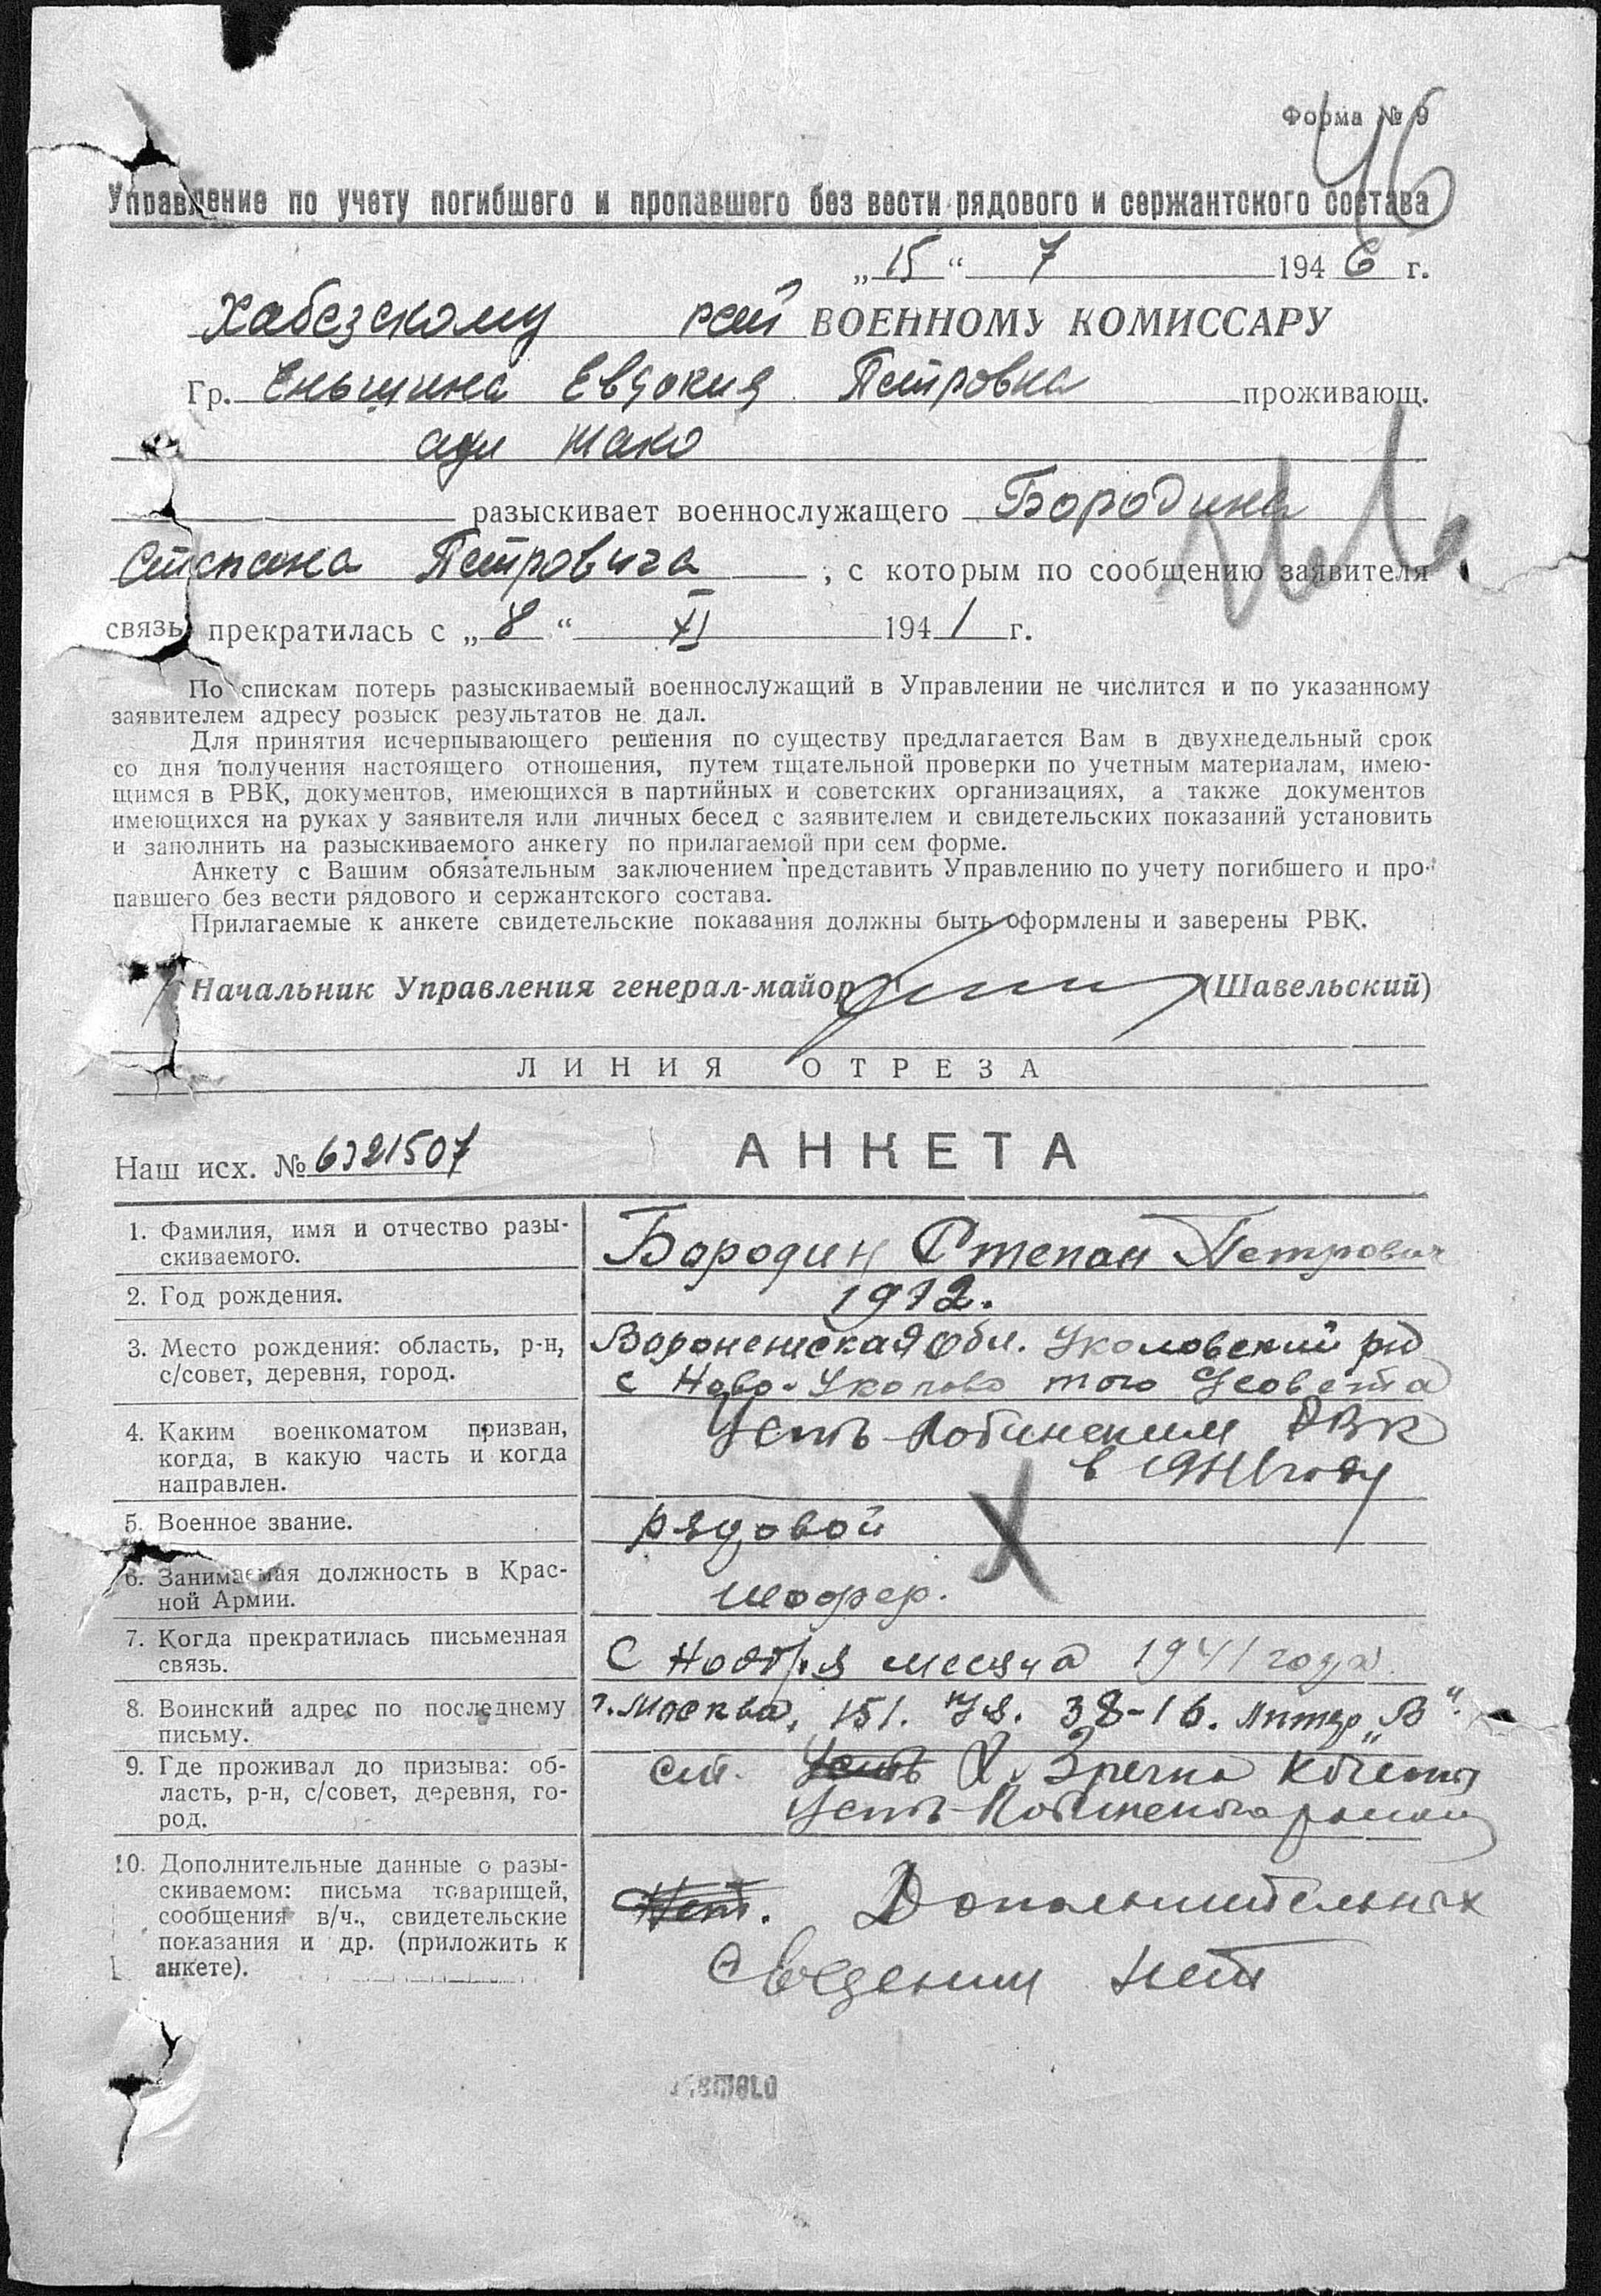 Форма № 9
46
Управление по учету погибшего и пропавшего без вести рядового и сержантского состава
„ 15 “ 7 194 6 г.
Хабезскому рай ВОЕННОМУ КОМИССАРУ
Гр. Еньшина Евдокия Петровна проживающ.
аул Жако
разыскивает военнослужащего Бородина
Степана Петровича , с которым по сообщению заявителя
связь прекратилась с „ 8 “ XI 194 1 г.
По спискам потерь разыскиваемый военнослужащий в Управлении не числится и по указанному
заявителем адресу розыск результатов не дал.
Для принятия исчерпывающего решения по существу предлагается Вам в двухнедельный срок
со дня получения настоящего отношения, путем тщательной проверки по учетным материалам, имею-
щимся в РВК, документов, имеющихся в партийных и советских организациях, а также документов
имеющихся на руках у заявителя или личных бесед с заявителем и свидетельских показаний установить
и заполнить на разыскиваемого анкету по прилагаемой при сем форме.
Анкету с Вашим обязательным заключением представить Управлению по учету погибшего и про-
павшего без вести рядового и сержантского состава.
Прилагаемые к анкете свидетельские показания должны быть оформлены и заверены РВК.
Начальник Управления генерал-майор (Шавельский)
ЛИНИЯ ОТРЕЗА
Наш исх. № 6321507 АНКЕТА
1. Фамилия, имя и отчество разы-
скиваемого.
Бородин Степан Петрович
2. Год рождения.
1912.
3. Место рождения: область, р-н,
с/совет, деревня, город.
Воронежская обл. Уколовский р-н
с Ново-Уколово того с/совета
4. Каким военкоматом призван,
когда, в какую часть и когда
направлен.
Усть-Лабинским РВК
в 1941 году
5. Военное звание.
рядовой
6. Занимаемая должность в Крас-
ной Армии.
шофер.
7. Когда прекратилась письменная
связь.
С Ноября месяца 1941 года
8. Воинский адрес по последнему
письму.
г. Москва, 151. 38-16. Литер „В“.
9. Где проживал до призыва: об-
ласть, р-н, с/совет, деревня, го-
род.
ст. Усть Х.
Усть-Лабинского района
10. Дополнительные данные о разы-
скиваемом: письма товарищей,
сообщения в/ч., свидетельские
показания и др. (приложить к
анкете).
Нет. Дополнительных
сведений нет